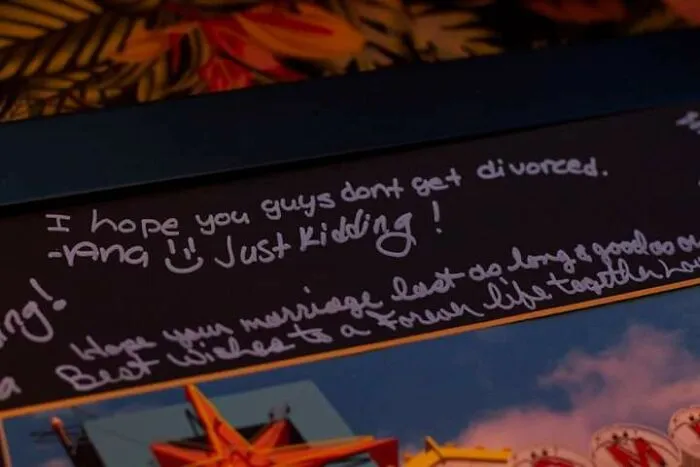 I hope you guys dont get divorced.
-Ana Just Kidding!
ng!
Hope your marriage last as long & good as ou
a Best wishes to a Foreve life together